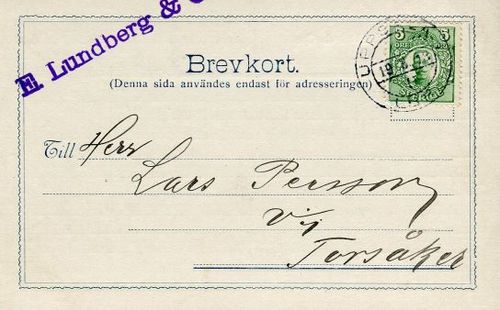 E. Lundberg &
Brevkort.
(Denna sida användes endast för adresseringen)
5 5
ÖRE
UPPSALA
Till Herr
Lars Persson
Torsåker